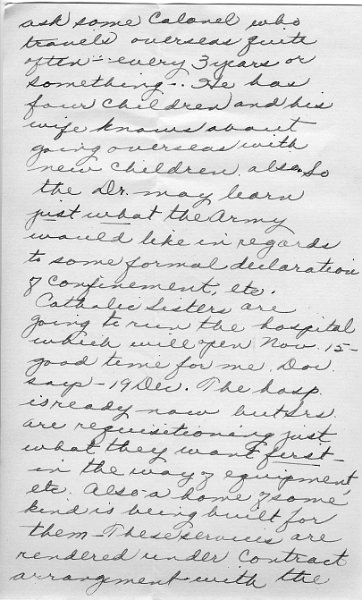 ask some Colonel who
travels overseas quite
often - every 3 years or
something -. He has
four children and his
wife knows about
going overseas with
new children, also. So
the Dr. may learn
just what the Army
would like in regards
to some formal declaration
of confinement, etc.
Catholic Sisters are
going to run the hospital
which will open Nov. 15 -
good time for me. Doc
says - 19 Dec. The hosp.
is ready now but Srs.
are requisitioning just
what they want first -
in the way of equipment,
etc. Also a home of some
kind is being built for
them - These services are
rendered under contract
arrangement with the